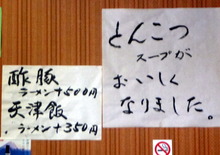 とんこつ
スープが
おいしく
なりました。
酢豚
ラーメン+500円
天津飯
ラーメン+350円